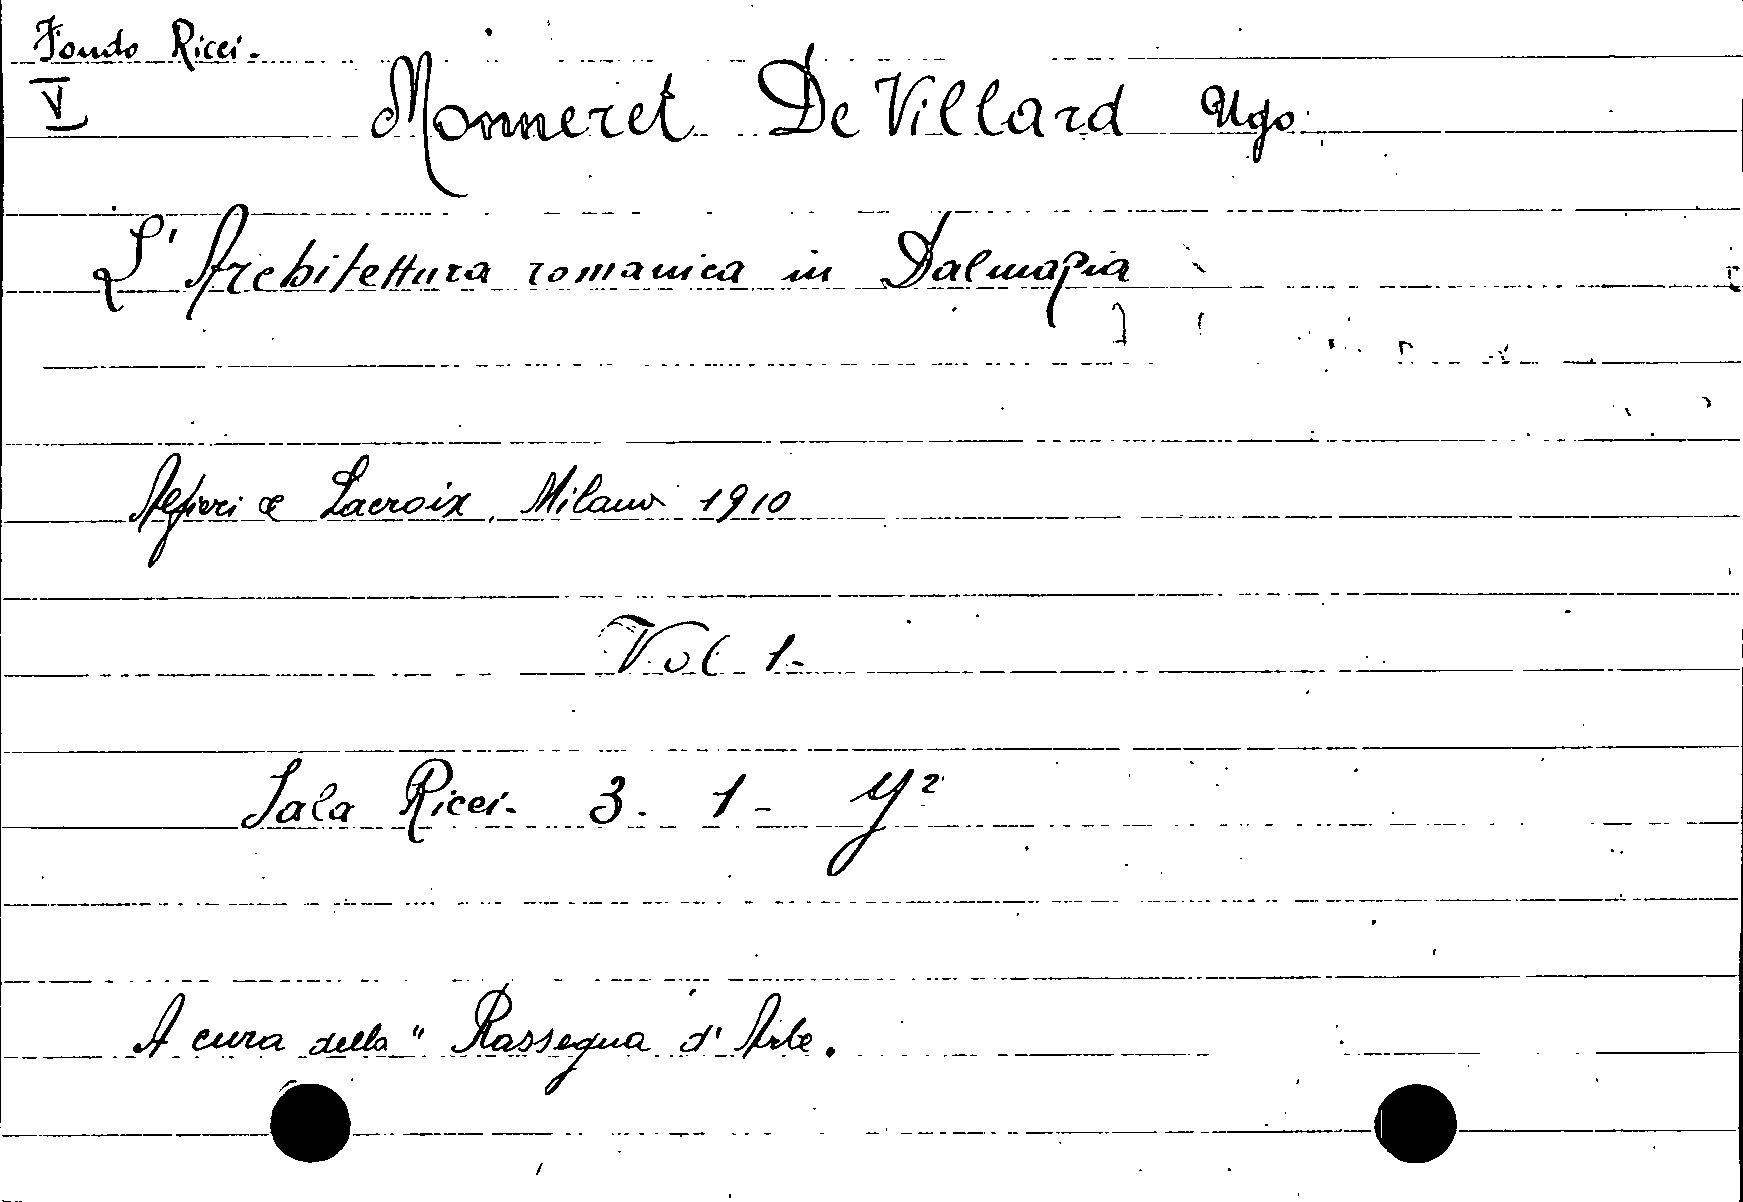 Fondo Ricci.
V
Monneret De Villard Ugo
L'Architettura romanica in Dalmazia
Alfieri & Lacroix. Milano 1910
Vol 1-
Sala Ricci. 3. 1- y²
A cura della " Rassegna d'Arte.